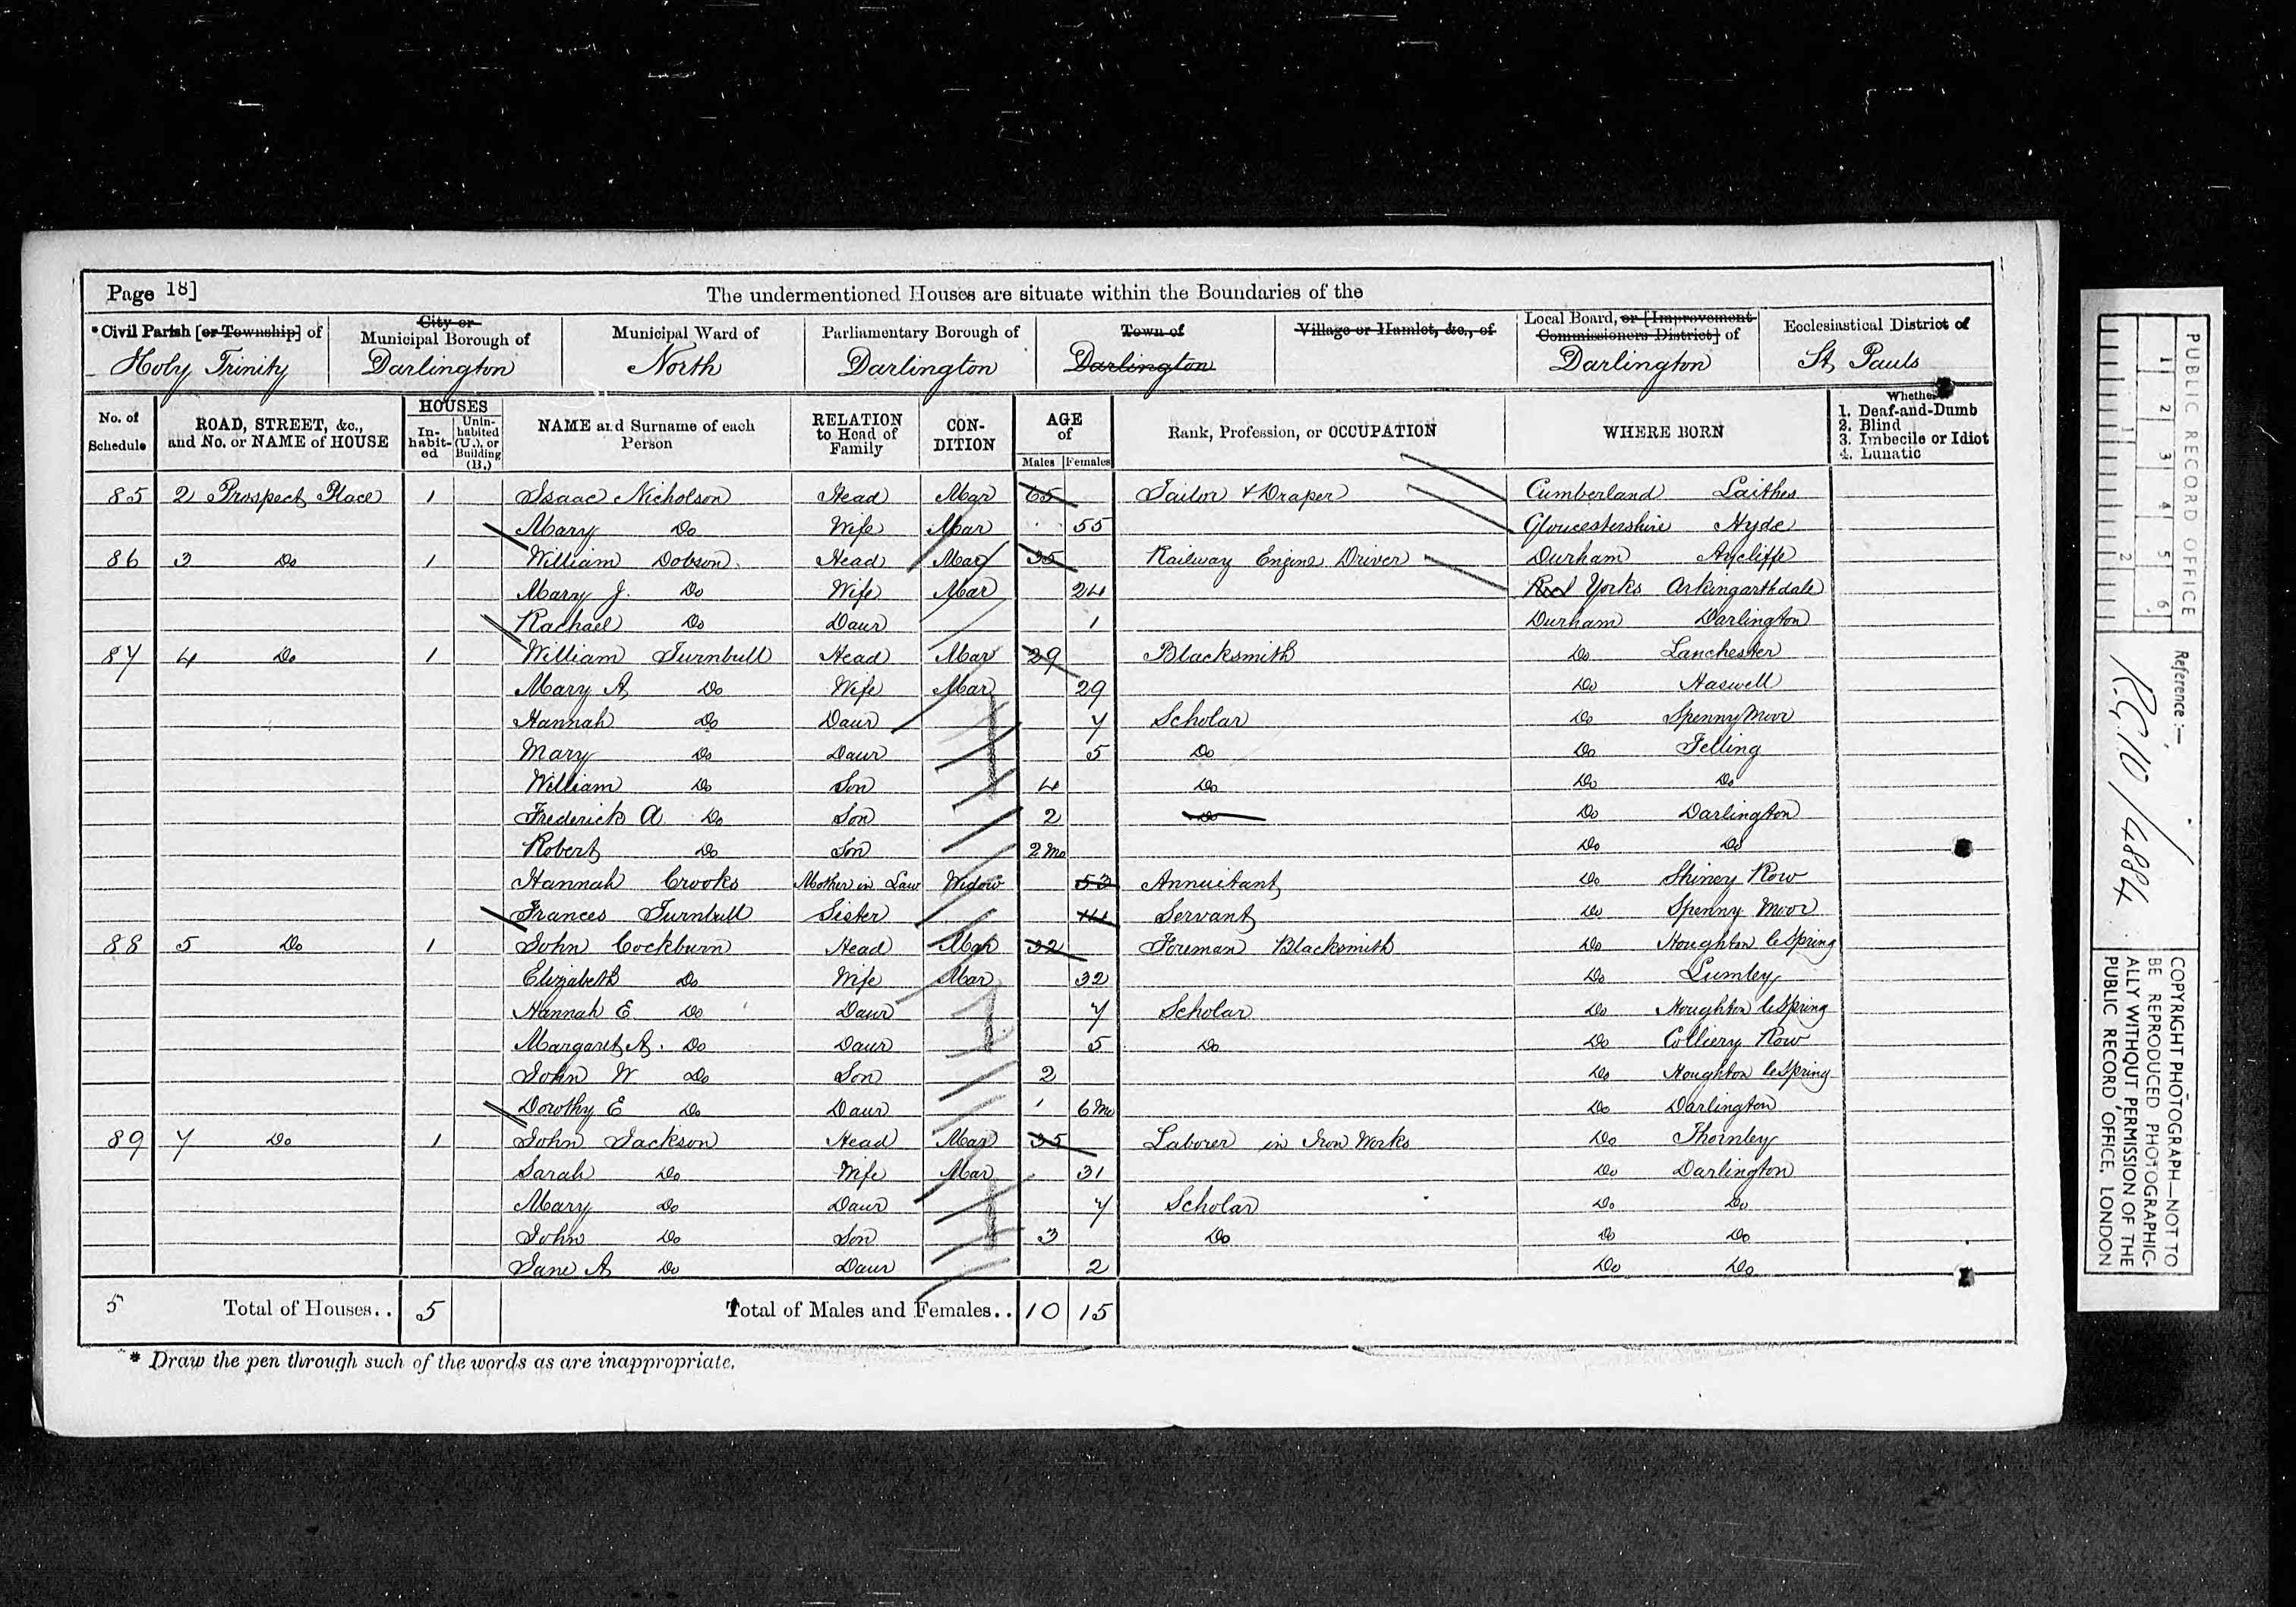 Page 18]
The undermentioned Houses are situate within the Boundaries of the
*Civil Parish [or Township] of
City or Municipal Borough of
Municipal Ward of
Parliamentary Borough of
Town of
Village or Hamlet, &c., of
Local Board, or [Improvement Commissioners District] of
Ecclesiastical District of
Holy Trinity Darlington North Darlington Darlington Darlington St Pauls
No. of Schedule
ROAD, STREET, &c., and No. or NAME of HOUSE
HOUSES
In-habit-ed
Unin-habited (U.), or Building (B.)
NAME and Surname of each Person
RELATION to Head of Family
CON-DITION
AGE of
Males Females
Rank, Profession, or OCCUPATION
WHERE BORN
Whether
1. Deaf-and-Dumb
2. Blind
3. Imbecile or Idiot
4. Lunatic
85 2 Prospect Place 1 Isaac Nicholson Head Mar 65 Tailor & Draper Cumberland Laithes
Mary Do Wife Mar 55 Gloucestershire Hyde
86 3 Do 1 William Dobson Head Mar 35 Railway Engine Driver Durham Aycliffe
Mary J. Do Wife Mar 24 Yorks Arkingarthdale
Rachael Do Daur 1 Durham Darlington
87 4 Do 1 William Turnbull Head Mar 29 Blacksmith Do Lanchester
Mary A Do Wife Mar 29 Do Haswell
Hannah Do Daur 7 Scholar Do Spenny Moor
Mary Do Daur 5 Do Do Felling
William Do Son 4 Do Do Do
Frederick A Do Son 2 Do Do Darlington
Robert Do Son 2 Mo Do Do
Hannah Crooks Mother in Law Widow 53 Annuitant Do Shiney Row
Frances Turnbull Sister Servant Do Spenny Moor
88 5 Do 1 John Cockburn Head Mar 32 Foreman Blacksmith Do Houghton le Spring
Elizabeth Do Wife Mar 32 Do Lumley
Hannah E Do Daur 7 Scholar Do Houghton le Spring
Margaret A. Do Daur 5 Do Do Colliery Row
John W Do Son 2 Do Houghton le Spring
Dorothy E Do Daur 6 Mo Do Darlington
89 7 Do 1 John Jackson Head Mar 35 Laborer in Iron Works Do Thornley
Sarah Do Wife Mar 31 Do Darlington
Mary Do Daur 7 Scholar Do Do
John Do Son 3 Do Do Do
Jane A Do Daur 2 Do Do
5 Total of Houses.. 5 Total of Males and Females.. 10 15
* Draw the pen through such of the words as are inappropriate.
PUBLIC RECORD OFFICE
1 2 3 4 5 6
1 2
Reference :-
R.G. 10/4884
COPYRIGHT PHOTOGRAPH—NOT TO
BE REPRODUCED PHOTOGRAPHIC-
ALLY WITHOUT PERMISSION OF THE
PUBLIC RECORD OFFICE, LONDON